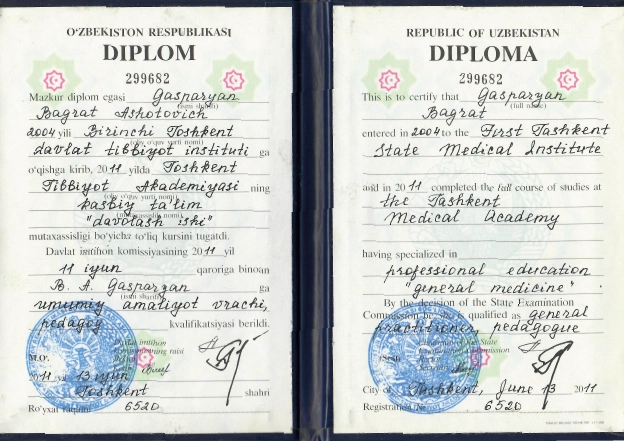 O‘ZBEKISTON RESPUBLIKASI
DIPLOM
299682
Mazkur diplom egasi Gasparyan
Bagrat Ashotovich
2004 yili Birinchi Toshkent
davlat tibbiyot instituti ga
o‘qishga kirib, 2011 yilda Toshkent
Tibbiyot Akademiyasi ning
kasbiy ta'lim
"davolash ishi"
mutaxassisligi bo‘yicha to‘liq kursini tugatdi.
Davlat imtihon komissiyasining 2011 yil
11 iyun qaroriga binoan
B. A. Gasparyan ga
umumiy amaliyot vrachi,
pedagog kvalifikatsiyasi berildi.
Davlat imtihon
komissiyasining raisi
M.O‘.
2011 yil 13 iyun
Toshkent shahri
Ro‘yxat raqami 6520
REPUBLIC OF UZBEKISTAN
DIPLOMA
299682
This is to certify that Gasparyan
(full name)
Bagrat
entered in 2004 to the First Tashkent
State Medical Institute
and in 2011 completed the full course of studies at
the Tashkent
Medical Academy
having specialized in
professional education
"general medicine"
By the decision of the State Examination
Commission he/she is qualified as general
practitioner, pedagogue
Chairman of the State
Examination Commission
Rector
Secretary
(Seal)
City of Tashkent, June 13 2011
Registration No 6520